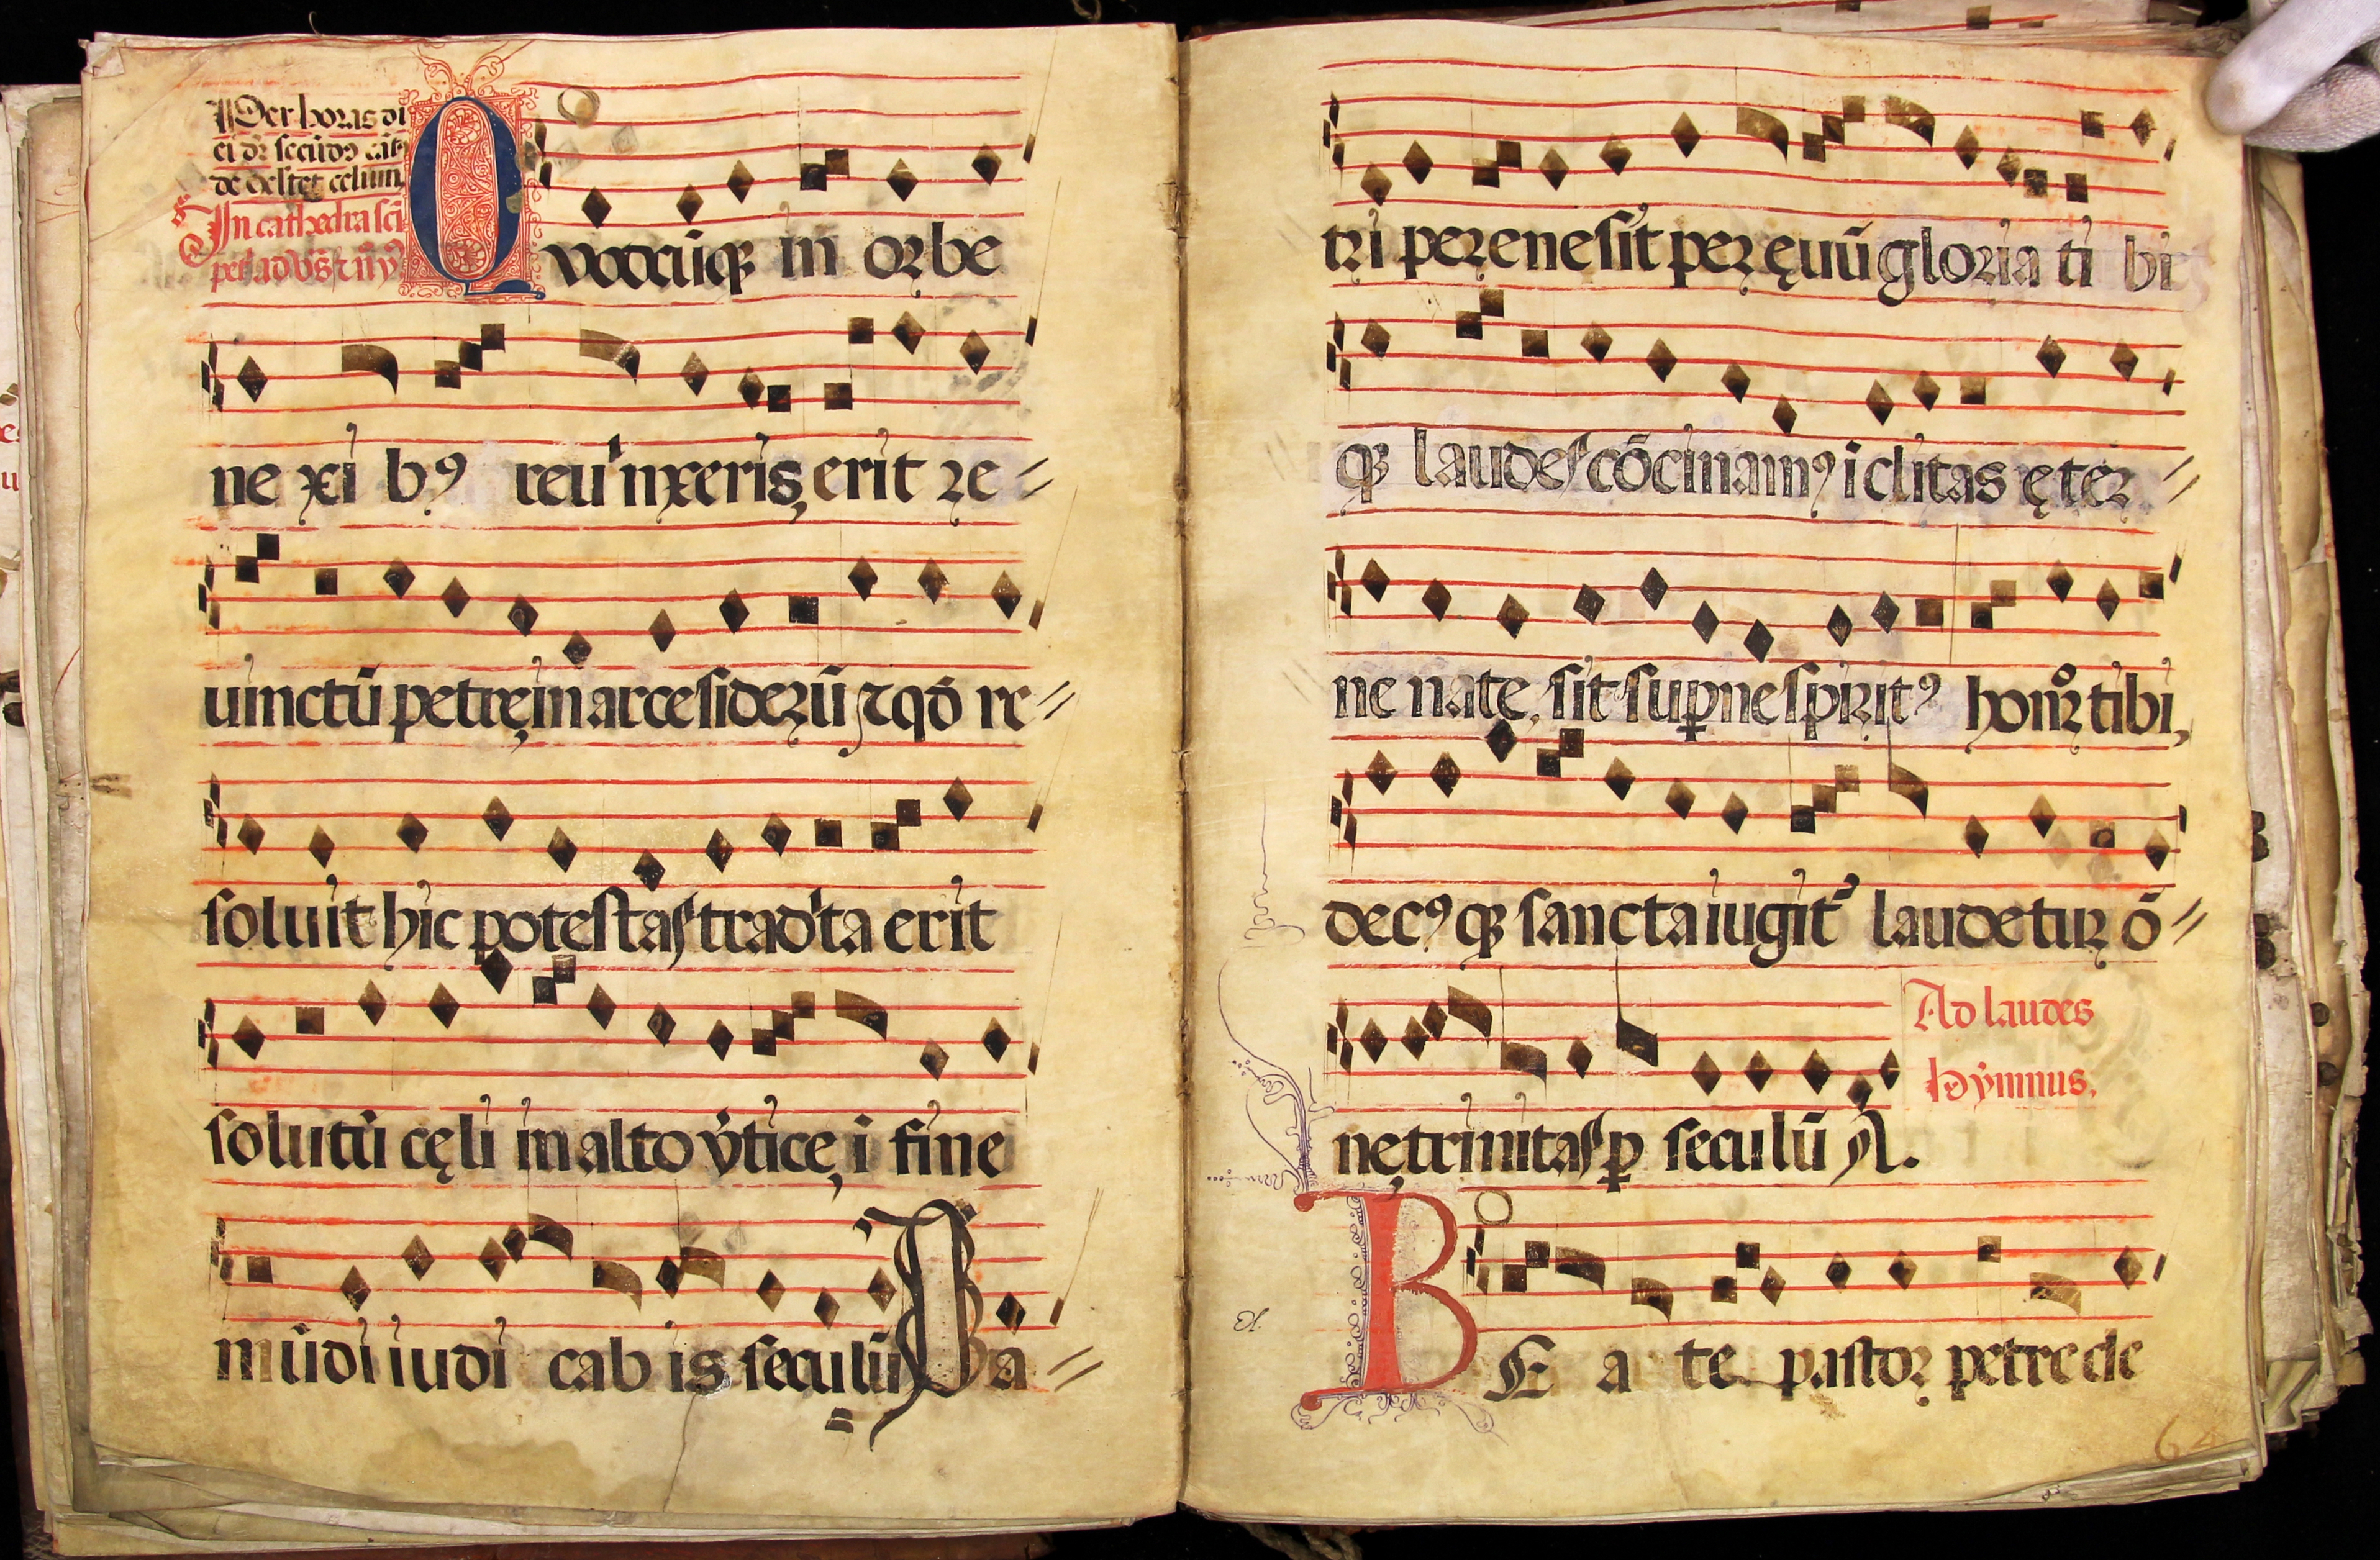 Per horas di
ci dr̄ secūdꝰ cāt
de exſtet celum.
In cathedra ſcī
petⁱ ad vs̄ ⁊ īıı yꝰ
Quodcūqꝫ in orbe
ne xi bꝰ reuinxeris, erit re=
uinctū petrę, in arce siderū ⁊ qō re=
soluit hic potestas tradita erit
solutū cęli in alto v̄tice, ī fine
mūdi iudi cab is seculū Pa=
tri perene sit per ęuū gloria ti bi
qꝫ laudes cōcinamꝰ īclitas ęter=
ne nate, sit suꝑne spiritꝰ honor tibi,
decꝰqꝫ sancta iugit̾ laudetur ō=
nę trinitas ꝑ seculū A.
Ad laudes
Hymnus.
BE a te pastor petre cle
64